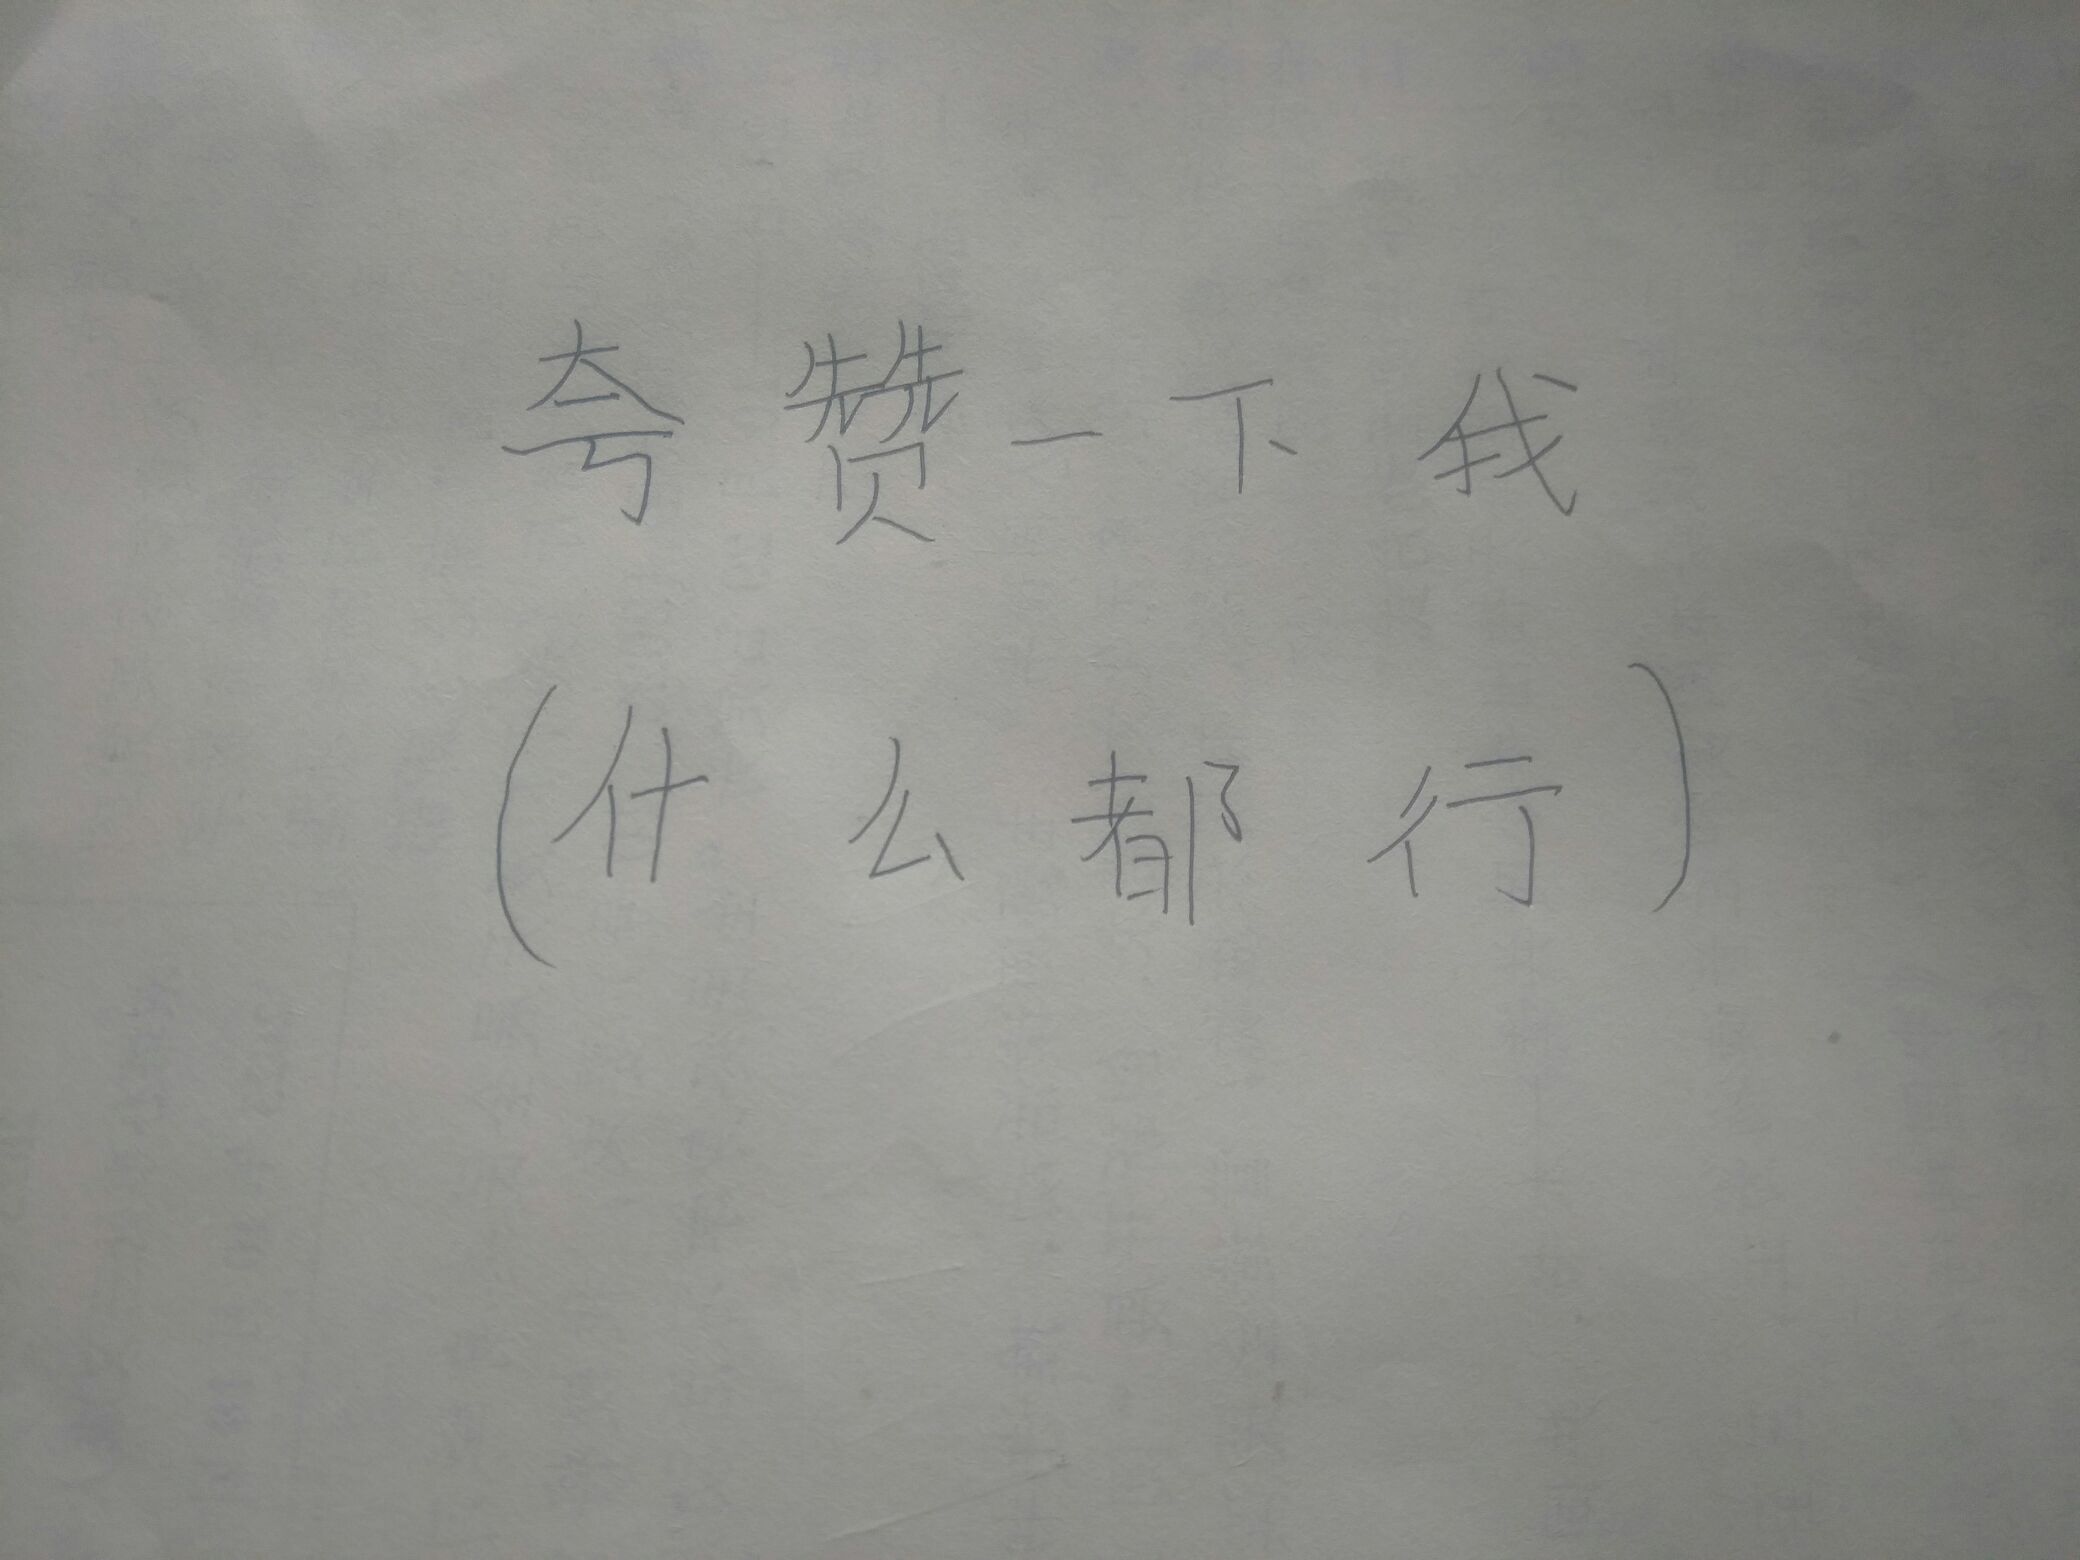 夸赞一下我
(什么都行)